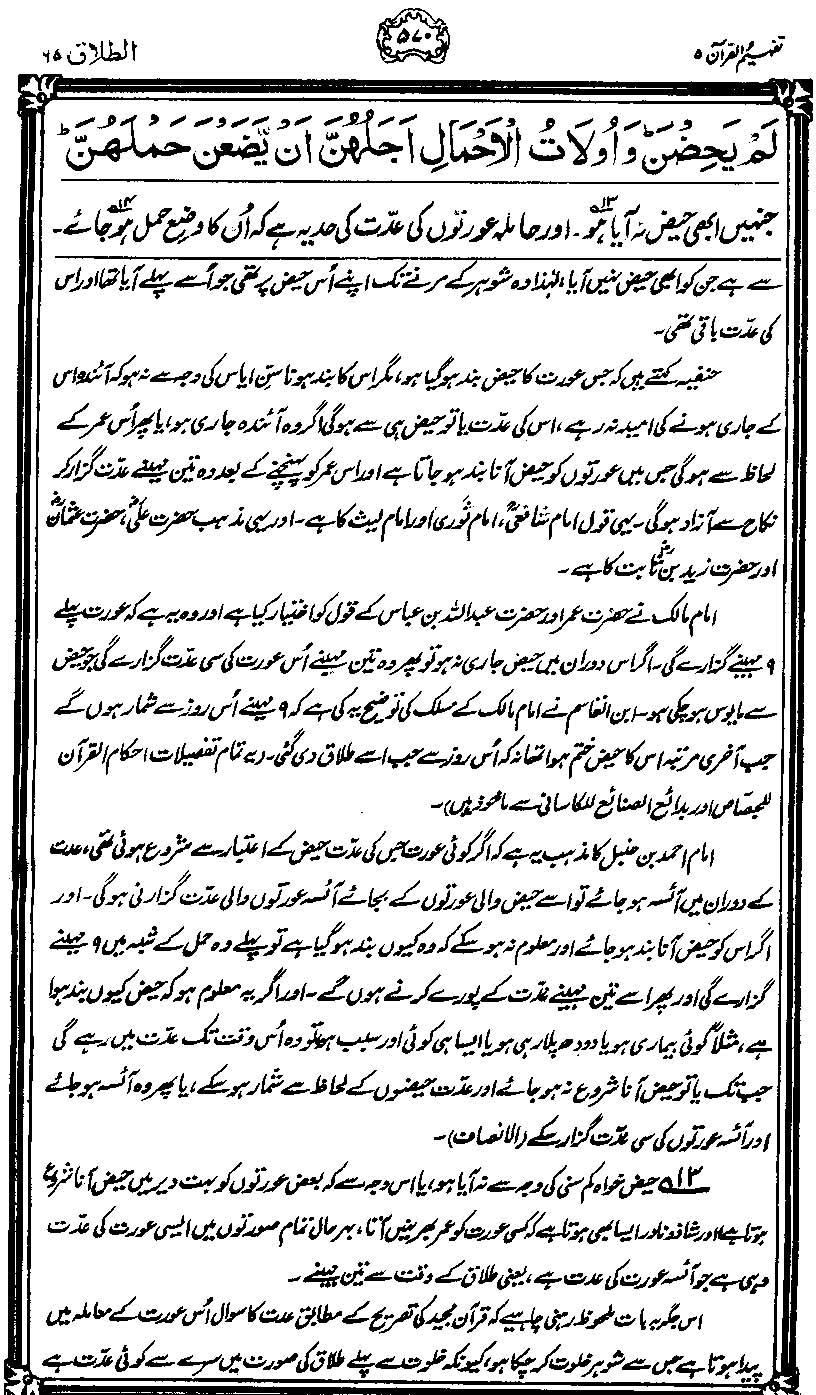 تفہیم القرآن ۵
۵۷۰
الطلاق ۶۵
لَمْ يَحِضْنَ ۚ وَاُولَاتُ الْاَحْمَالِ اَجَلُهُنَّ اَنْ يَّضَعْنَ حَمْلَهُنَّ ؕ
جنہیں ابھی حیض نہ آیا ہو۱۳۔ اور حاملہ عورتوں کی عدّت کی حد یہ ہے کہ اُن کا وضعِ حمل ہو جائے۱۴۔
سے ہے جن کو ابھی حیض نہیں آیا، لہٰذا وہ شوہر کے مرنے تک اپنے اُس حیض پر تھی جو اُسے پہلے آیا تھا اور اس
کی عدّت باقی تھی۔
حنفیہ کہتے ہیں کہ جس عورت کا حیض بند ہو گیا ہو، مگر اس کا بند ہونا سنِ ایاس کی وجہ سے نہ ہو کہ آئندہ اس
کے جاری ہونے کی امید نہ رہے، اس کی عدّت یا تو حیض ہی سے ہوگی اگر وہ آئندہ جاری ہو، یا پھر اُس عمر کے
لحاظ سے ہوگی جس میں عورتوں کو حیض آنا بند ہو جاتا ہے اور اس عمر کو پہنچنے کے بعد وہ تین مہینے عدّت گزار کر
نکاح سے آزاد ہوگی۔ یہی قول امام شافعیؒ، امام ثوری اور امام لیث کا ہے۔ اور یہی مذہب حضرت علیؓ، حضرت عثمانؓ
اور حضرت زیدؓ بن ثابت کا ہے۔
امام مالک نے حضرت عمر اور حضرت عبداللہ بن عباس کے قول کو اختیار کیا ہے اور وہ یہ ہے کہ عورت پہلے
۹ مہینے گزارے گی۔ اگر اس دوران میں حیض جاری نہ ہو تو پھر وہ تین مہینے اُس عورت کی سی عدّت گزارے گی جو حیض
سے مایوس ہو چکی ہو۔ ابن القاسم نے امام مالک کے مسلک کی توضیح یہ کی ہے کہ ۹ مہینے اُس روز سے شمار ہوں گے
جب آخری مرتبہ اس کا حیض ختم ہوا تھا نہ کہ اُس روز سے جب اسے طلاق دی گئی۔ (یہ تمام تفصیلات احکام القرآن
للجصّاص اور بدائع الصنائع للکاسانی سے ماخوذ ہیں)۔
امام احمد بن حنبل کا مذہب یہ ہے کہ اگر کوئی عورت جس کی عدّت حیض کے اعتبار سے شروع ہوئی تھی، عدت
کے دوران میں آئسہ ہو جائے تو اسے حیض والی عورتوں کے بجائے آئسہ عورتوں والی عدّت گزارنی ہوگی۔ اور
اگر اس کو حیض آنا بند ہو جائے اور معلوم نہ ہو سکے کہ وہ کیوں بند ہو گیا ہے تو پہلے وہ حمل کے شبہ میں ۹ مہینے
گزارے گی اور پھر اسے تین مہینے عدّت کے پورے کرنے ہوں گے۔ اور اگر یہ معلوم ہو کہ حیض کیوں بند ہوا
ہے، مثلاً کوئی بیماری ہو یا دودھ پلا رہی ہو یا ایسا ہی کوئی اور سبب ہو تو وہ اُس وقت تک عدّت میں رہے گی
جب تک یا تو حیض آنا شروع نہ ہو جائے اور عدّت حیضوں کے لحاظ سے شمار ہو سکے، یا پھر وہ آئسہ ہو جائے
اور آئسہ عورتوں کی سی عدّت گزار سکے (الانصاف)۔
۱۳ حیض خواہ کم سنی کی وجہ سے نہ آیا ہو، یا اس وجہ سے کہ بعض عورتوں کو بہت دیر میں حیض آنا شروع
ہوتا ہے، اور شاذ و نادر ایسا بھی ہوتا ہے کہ کسی عورت کو عمر بھر نہیں آتا، بہر حال تمام صورتوں میں ایسی عورت کی عدّت
وہی ہے جو آئسہ عورت کی عدت ہے، یعنی طلاق کے وقت سے تین مہینے۔
اس جگہ یہ بات ملحوظ رہنی چاہیے کہ قرآن مجید کی تصریح کے مطابق عدت کا سوال اُس عورت کے معاملہ میں
پیدا ہوتا ہے جس سے شوہر خلوت کر چکا ہو، کیونکہ خلوت سے پہلے طلاق کی صورت میں سرے سے کوئی عدّت ہے